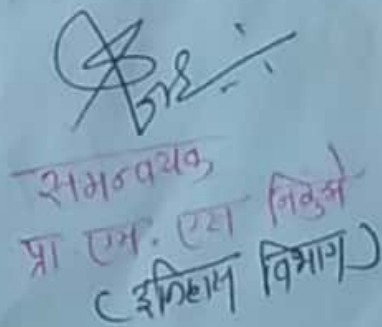 समन्वयक
प्रा. एम. एस निकुले
(इतिहास विभाग)